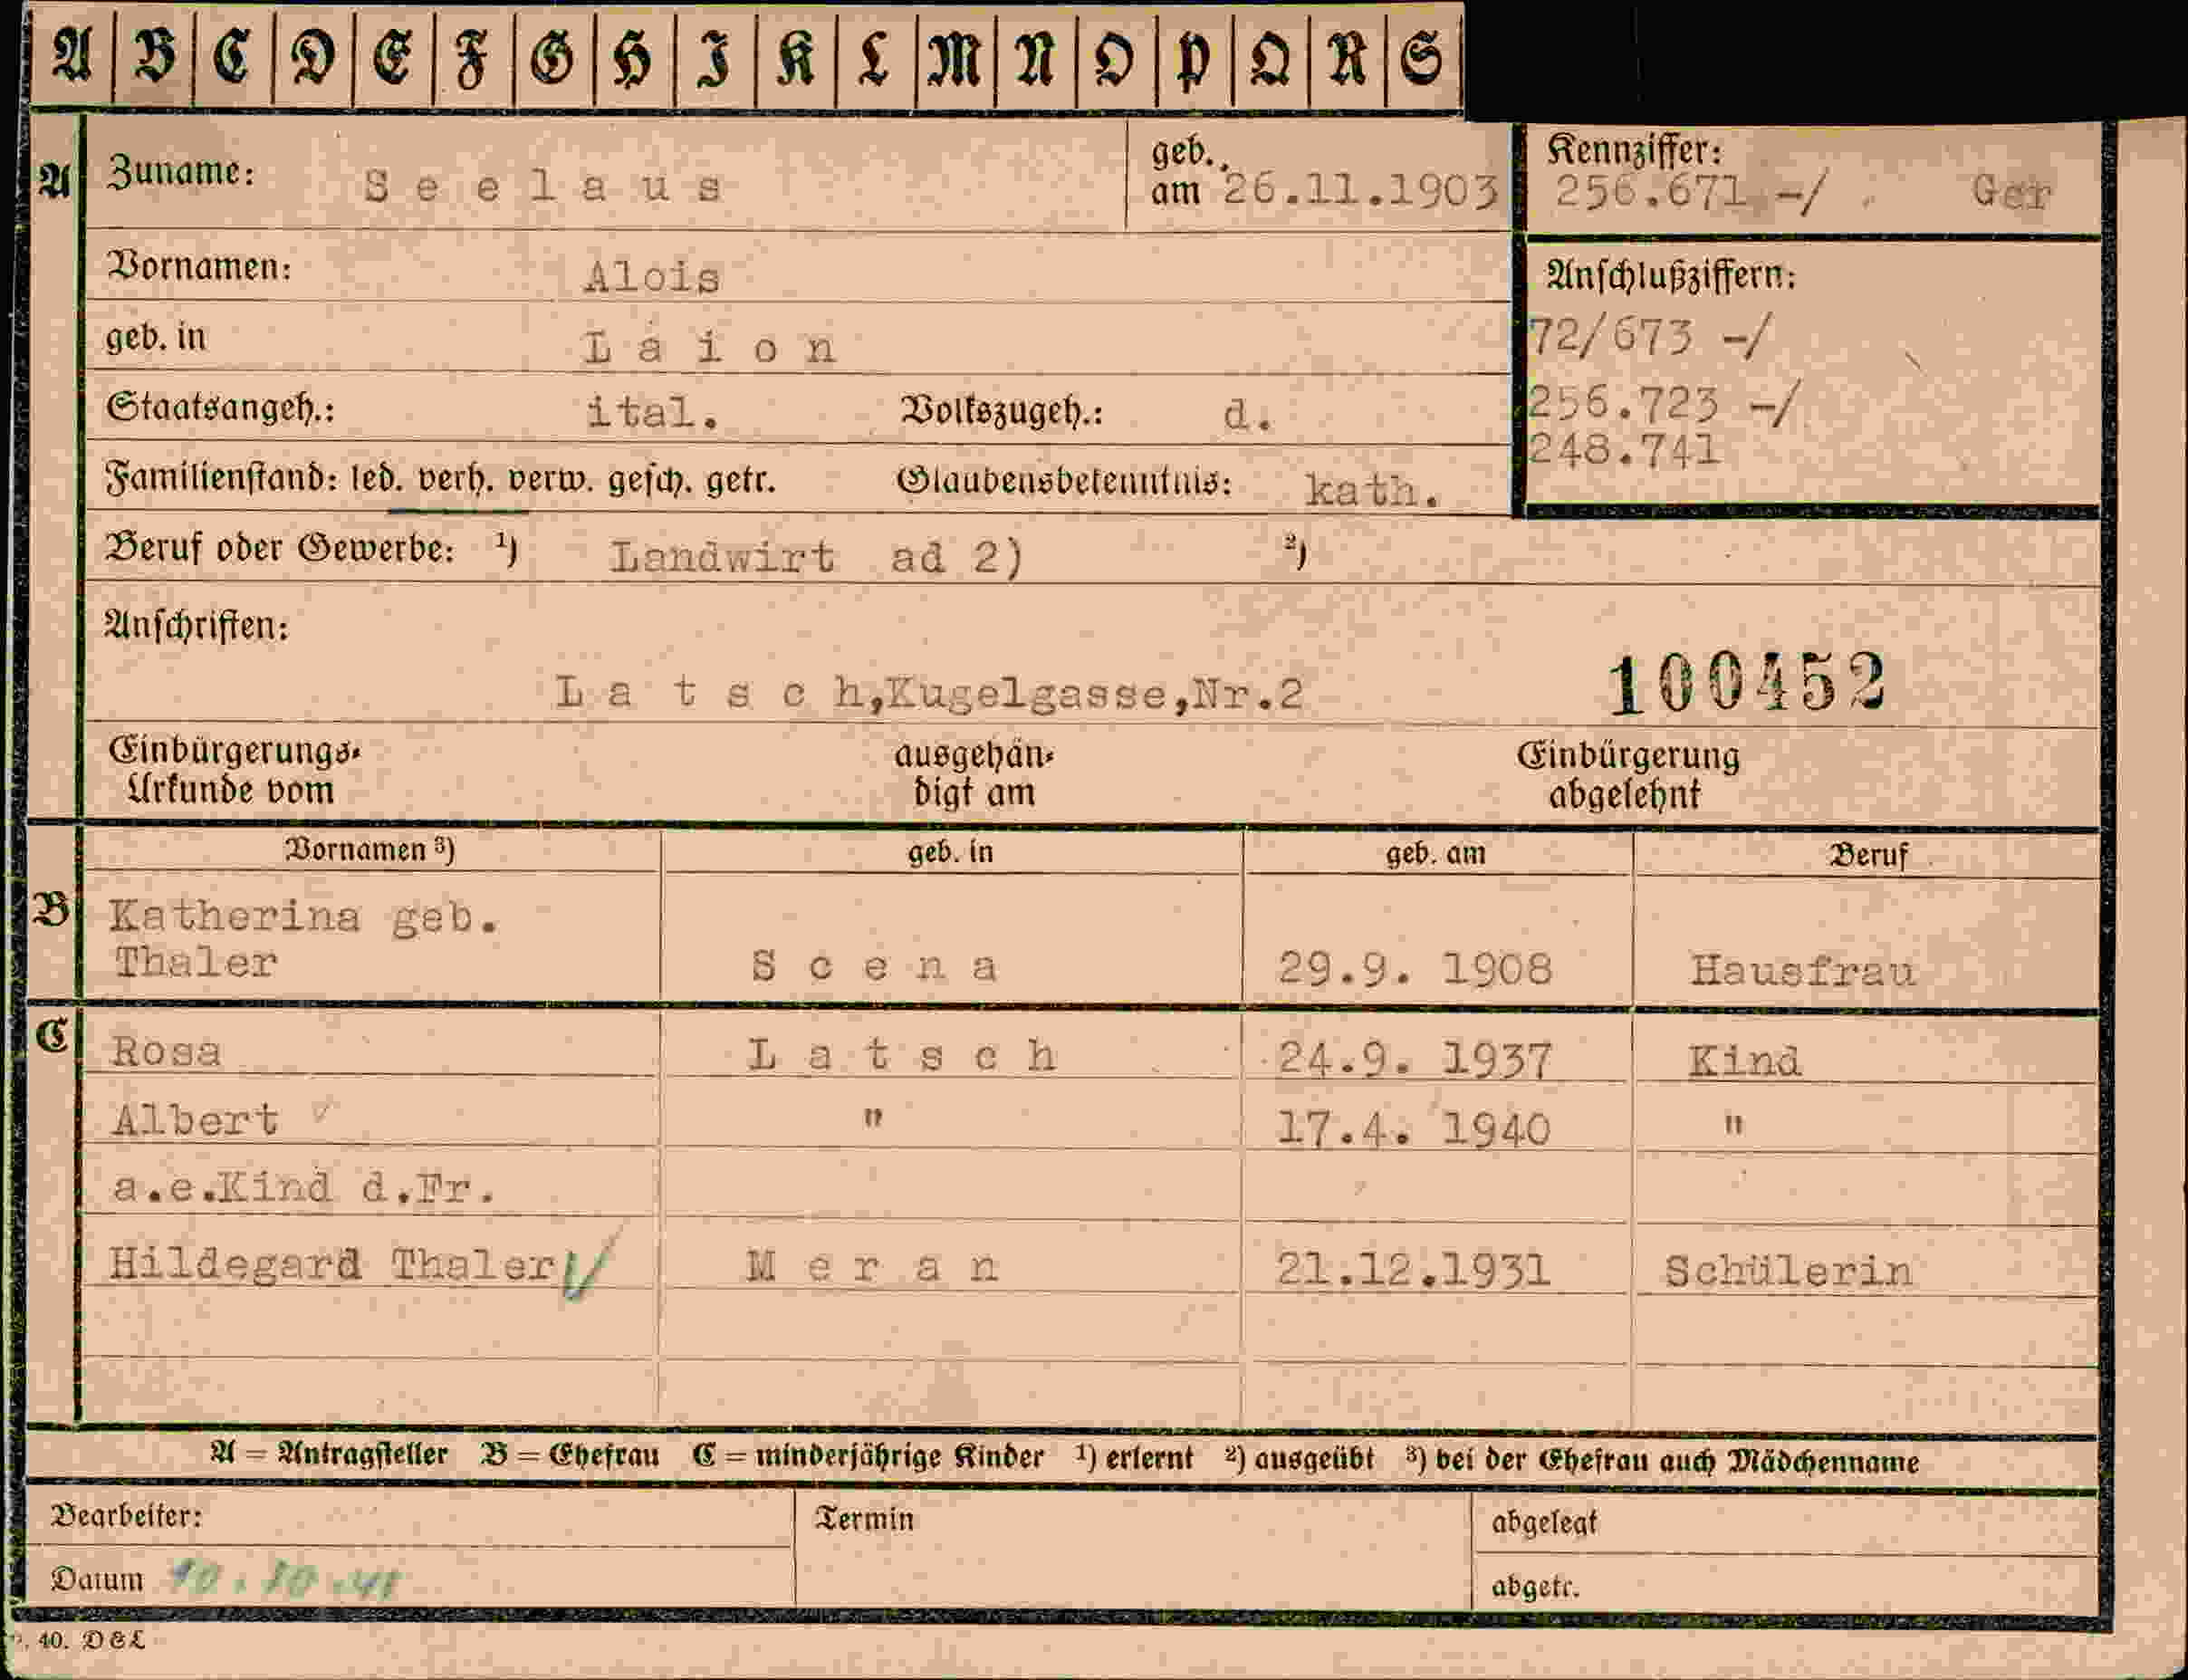 A B C D E F G H I K L M N O P Q R S
A Zuname: Seelaus geb. am 26.11.1903 Kennziffer: 256.671 -/ Ger
Vornamen: Alois Anschlußziffern:
geb. in Laion 72/673 -/
Staatsangeh.: ital. Volkszugeh.: d. 256.723 -/
248.741
Familienstand: led. verh. verw. gesch. getr. Glaubensbekenntnis: kath.
Beruf oder Gewerbe: ¹) Landwirt ad 2) ²)
Anschriften:
Latsch,Kugelgasse,Nr.2 100452
Einbürgerungs- ausgehän- Einbürgerung
Urkunde vom digt am abgelehnt
Vornamen ³) geb. in geb. am Beruf
B Katherina geb.
Thaler Scena 29.9. 1908 Hausfrau
C Rosa Latsch 24.9. 1937 Kind
Albert " 17.4. 1940 "
a.e.Kind d.Fr.
Hildegard Thaler Meran 21.12.1931 Schülerin
A = Antragsteller B = Ehefrau C = minderjährige Kinder ¹) erlernt ²) ausgeübt ³) bei der Ehefrau auch Mädchenname
Bearbeiter: Termin abgelegt
Datum 10.10.41 abgetr.
40. D&L